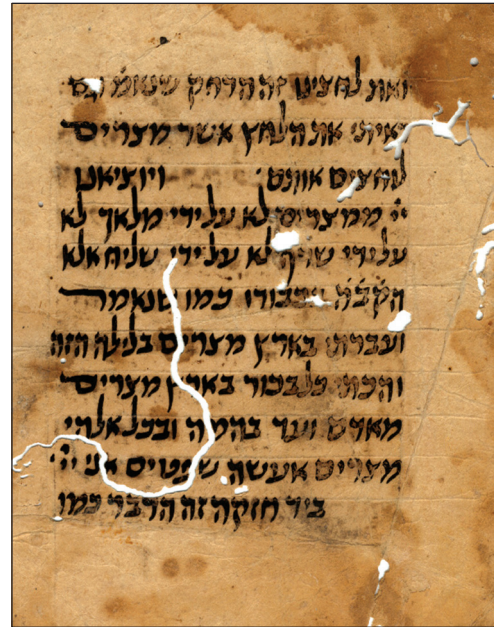 ואת לחצינו זה הדחק שנאמ' וגם
ראיתי את הלחץ אשר מצרים
לחצים אותם : ויוציאנו
ייי ממצרים לא על ידי מלאך לא
על ידי שרף לא על ידי שליח אלא
הקבה בכבודו כמו שנאמר
ועברתי בארץ מצרים בלילה הזה
והכתי כל בכור בארץ מצרים
מאדם ועד בהמה ובכל אלהי
מצרים אעשה שפטים אני ייי
ביד חזקה זה הדבר כמו